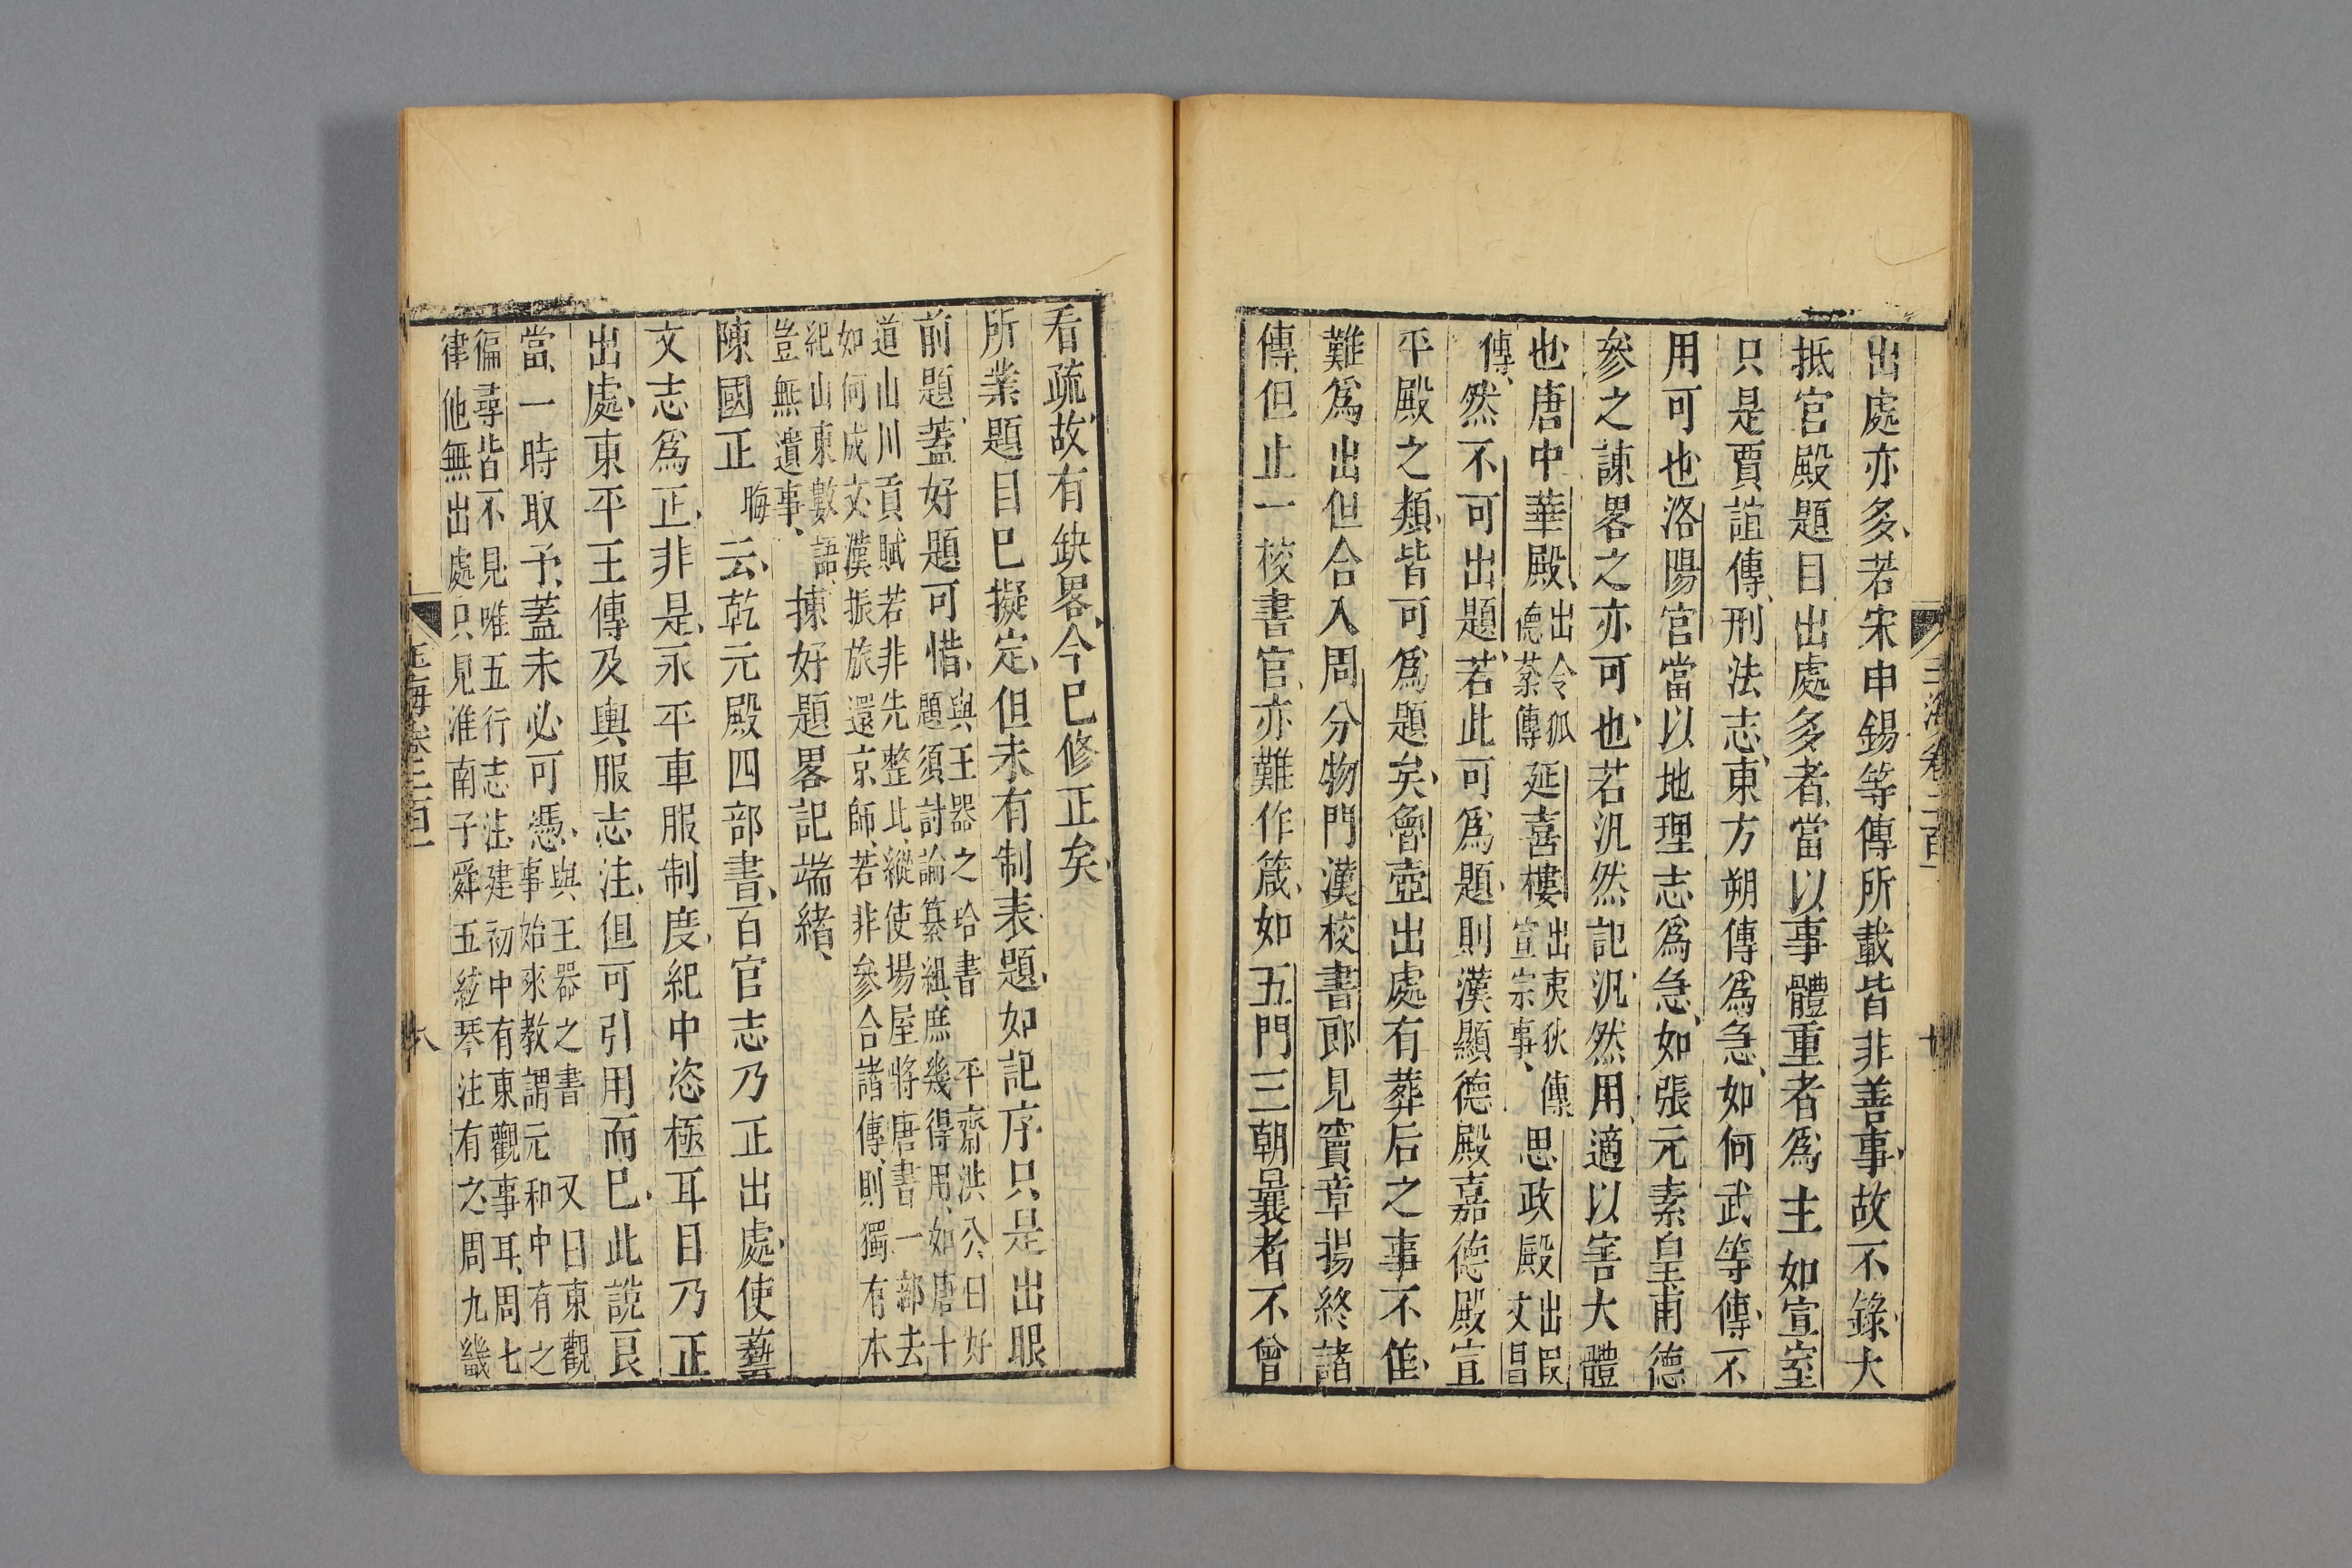 出處亦多、若宋申錫等傳所載皆非善事、故不錄、大
抵官殿題目、出處多者、當以事體重者爲主如宣室
只是賈誼傳、刑法志、東方朔傳爲急、如何武等傳、不
用可也、洛陽宮當以地理志爲急、如張元素皇甫德
參之諫畧之亦可也、若汎然記、汎然用、適以害大體
也、唐中華殿、出令狐德棻傳延喜樓出夷狄傳宣宗事、思政殿出段文昌
傳、然不可出題、若此可爲題、則漢顯德殿嘉德殿宣
平殿之類、皆可爲題矣、魯壺出處有葬后之事不佳、
難爲出但合入周分物門漢校書郎見竇章揚終諸
傳、但止一校書官、亦難作箴、如五門三朝曩者不曾
看疏、故有缺畧、今已修正矣、
所業題目已擬定、但未有制表題、如記序只是出眼
前題、蓋好題可惜、與王器之珨書 平齋洪公、曰好題須討論纂組、庶幾得用、如唐十
道山川貢賦若非先整此、縱使場屋將唐書一部去如何成文漢振旅還京師、若非參合諸傳、則獨有本
紀山東數語、豈無遺事、揀好題畧記端緒、
陳國正晦云、乾元殿四部書、百官志乃正出處、使藝
文志爲正、非是、永平車服制度、紀中恣極耳目乃正
出處、東平王傳及輿服志注、但可引用而已、此說良
當、一時取予、蓋未必可憑、與王器之書 又曰東觀事始來教謂元和中有之
徧尋皆不見唯五行志注、建初中有東觀事耳、周七律他無出處只見淮南子舜五絃琴注有之周九畿
玉海卷二百一
八